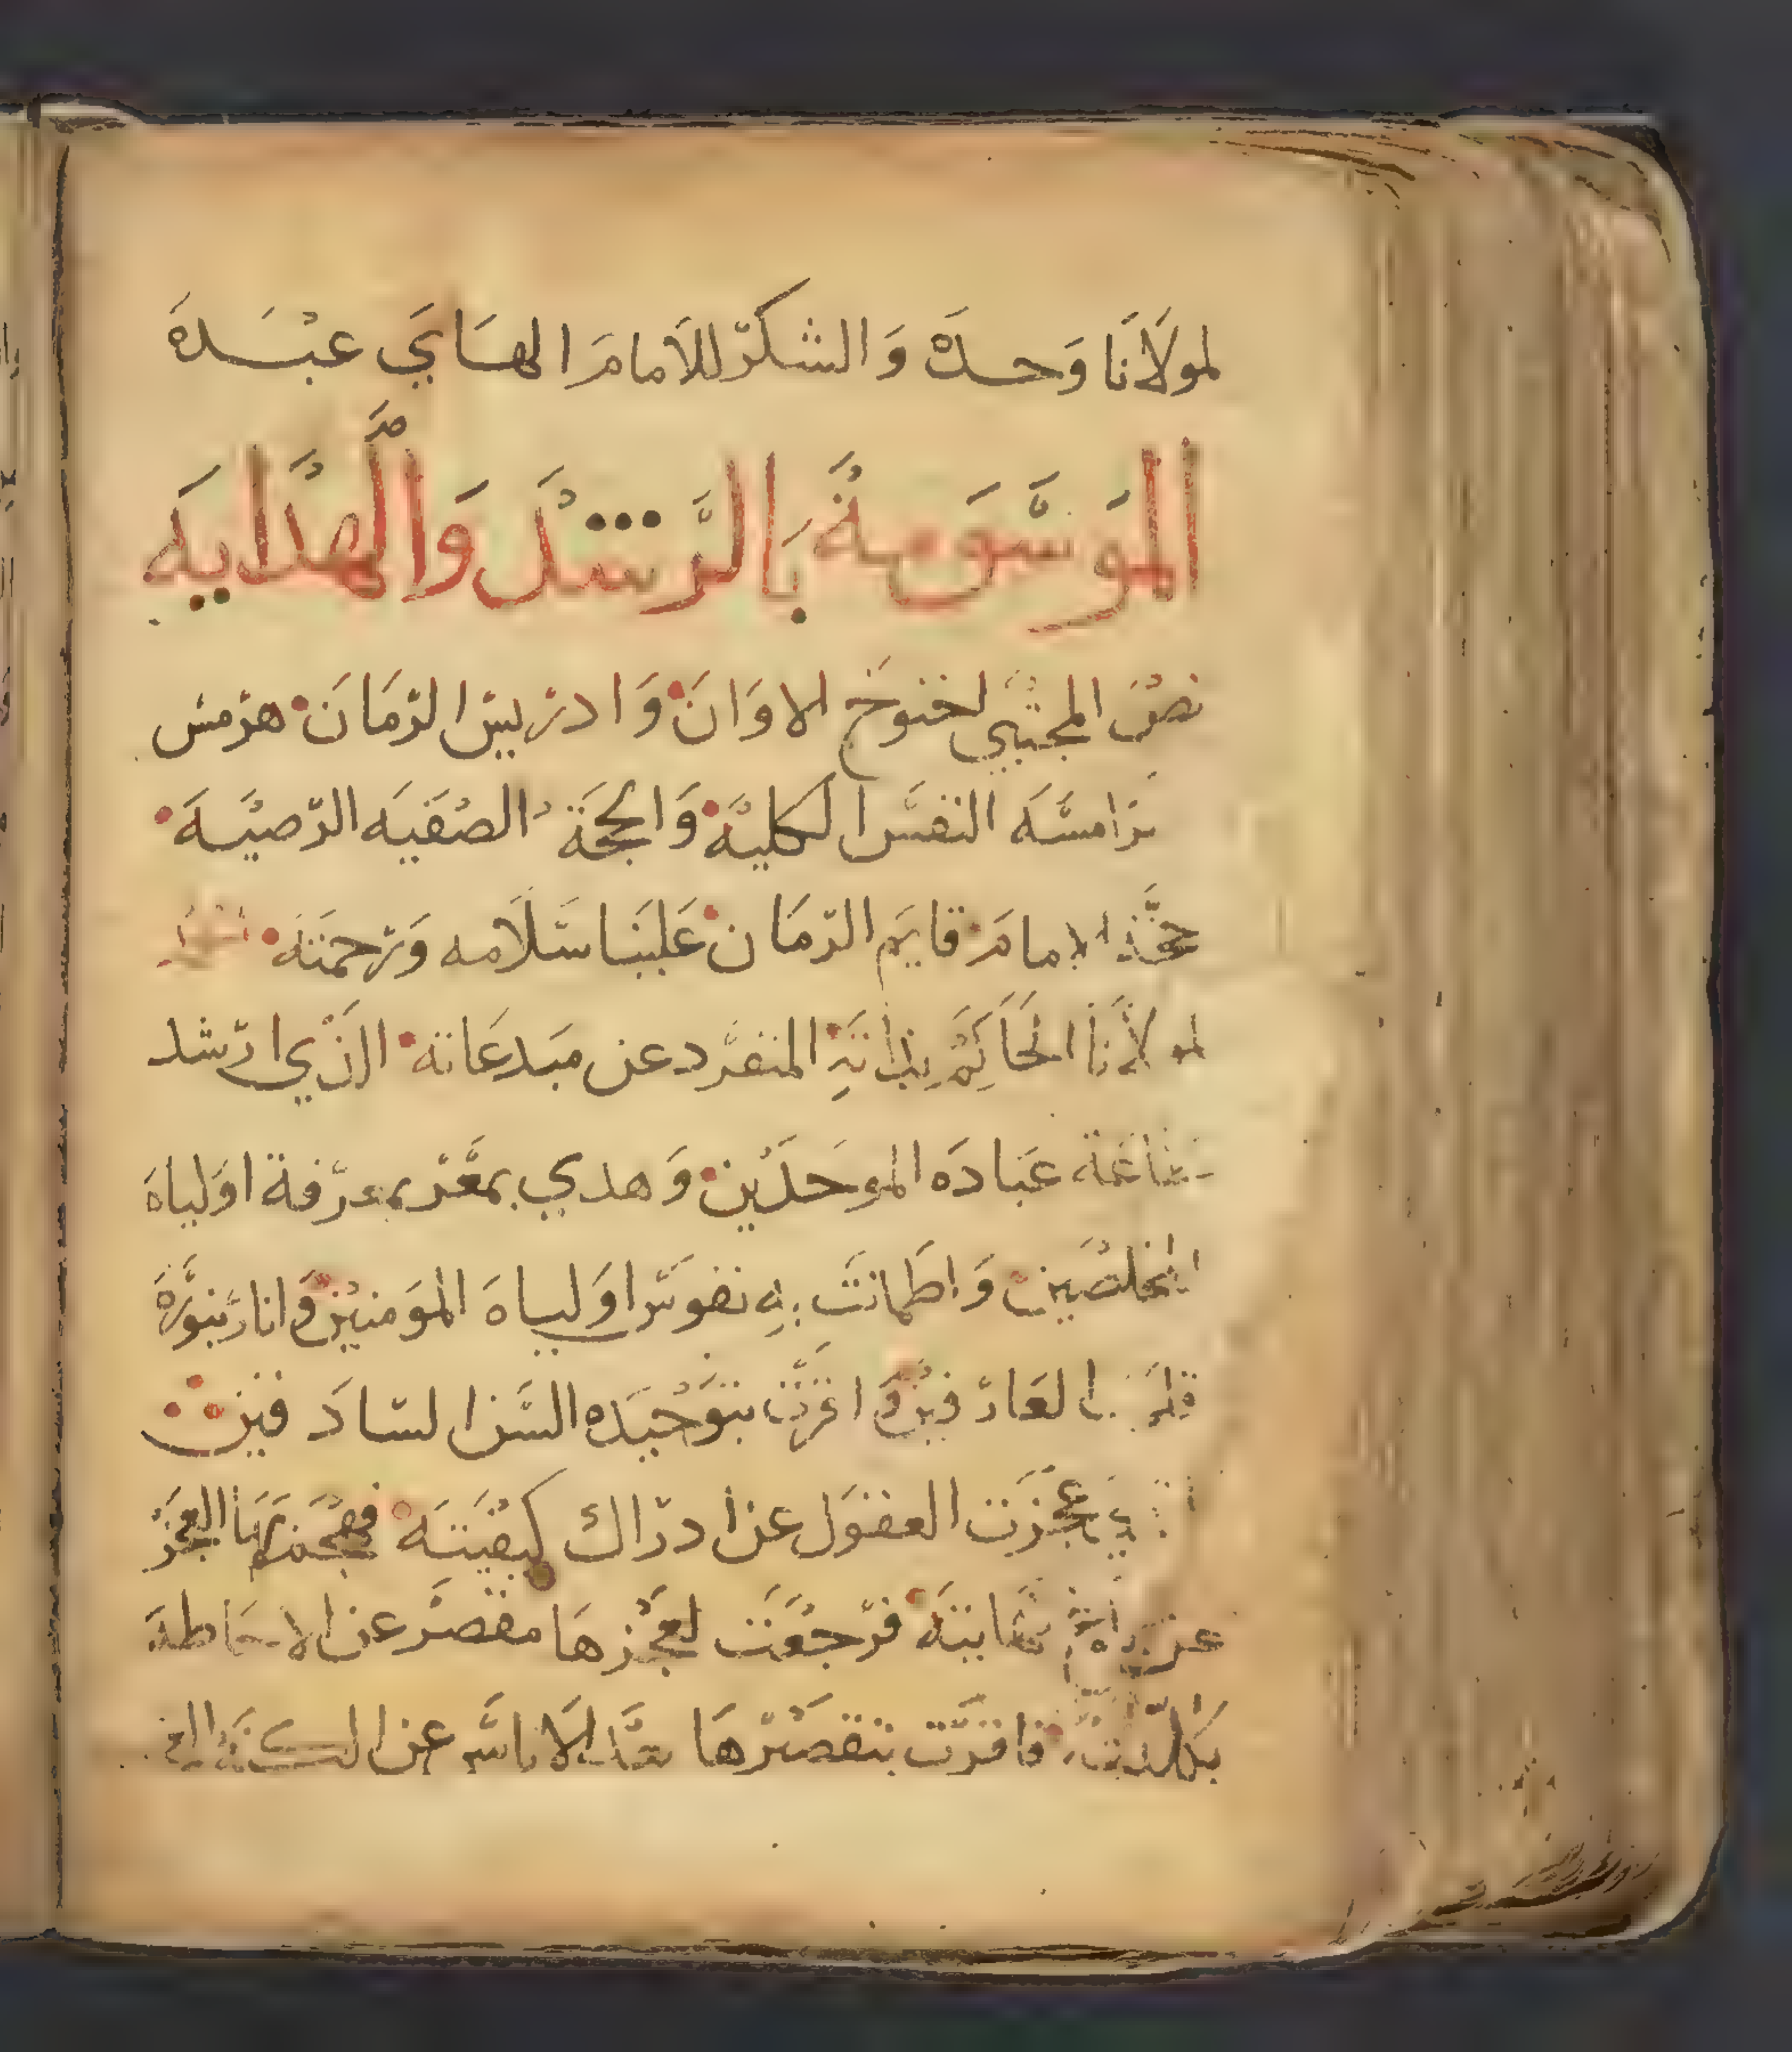 لمولَانا وَحده وَالشكر للامامَ الهَايَي عبْدَهَ
الموَسَّوَمةُ بَالرَّشدَ وَالَّهدَّايهَ
نصُ المجتبي اخنوخَ الاوَانَ وَادريس الزمَانَ هرمس
هرَامسَّهَ النفسَّ الكليَّة وَالحجَةُ الصُفَيَه الرّضيَّهَ
الامامَ قايمَ الزمَان عَلينَا سَلَامه وَرحمَتهَ
لمولَانَا الحَاكِمَ بذاتهِ المنفرَّد عن مبَدعَاته الذَي ارشد
عبَادَه الموحدَين وَهدي بمعَرّ بمعرّفة اوَلياهَ
المخلصَين وَاطَمانتَ بهِ نفوسَ اوَلياهَ الموَمنين وَانارَ بنوَّرهَ
العَارفين وَاغرّت بتوَحُيدَه السَّن السَادَ فين
عجَزَت العقوَل عن ادرّاك كيفيَتهَ العجَز
عن فرّجعَت لعجَزهَا مقصرَ عن الاحَاطة
فاقرّت بتقصَيرّهَا عن